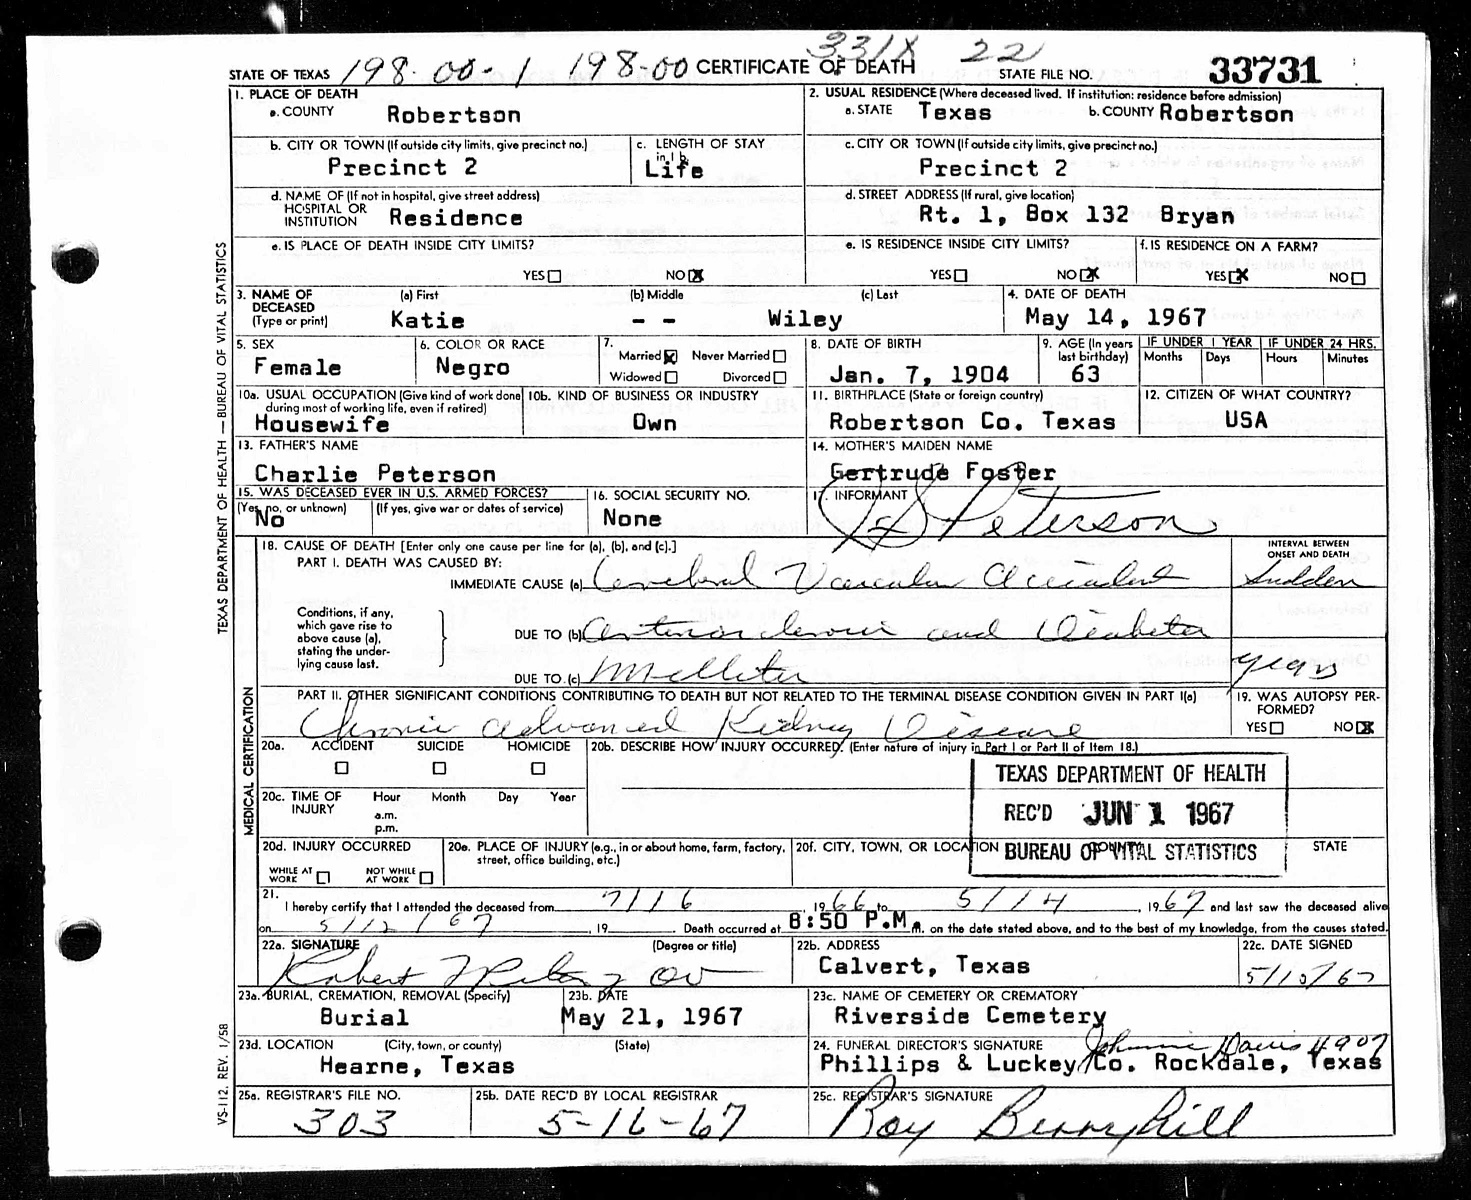 198-00-1 198-00 331X 22
STATE OF TEXAS CERTIFICATE OF DEATH STATE FILE NO. 33731
1. PLACE OF DEATH
a. COUNTY Robertson
2. USUAL RESIDENCE (Where deceased lived. If institution: residence before admission)
a. STATE Texas b. COUNTY Robertson
b. CITY OR TOWN (If outside city limits, give precinct no.) Precinct 2
c. LENGTH OF STAY in 1 b. Life
c. CITY OR TOWN (If outside city limits, give precinct no.) Precinct 2
d. NAME OF (If not in hospital, give street address) HOSPITAL OR INSTITUTION Residence
d. STREET ADDRESS (If rural, give location) Rt. 1, Box 132 Bryan
e. IS PLACE OF DEATH INSIDE CITY LIMITS? YES NO X
e. IS RESIDENCE INSIDE CITY LIMITS? YES NO X
f. IS RESIDENCE ON A FARM? YES X NO
3. NAME OF DECEASED (Type or print) (a) First Katie (b) Middle - - (c) Last Wiley
4. DATE OF DEATH May 14, 1967
5. SEX Female
6. COLOR OR RACE Negro
7. Married X Never Married Widowed Divorced
8. DATE OF BIRTH Jan. 7, 1904
9. AGE (In years last birthday) 63
IF UNDER 1 YEAR Months Days
IF UNDER 24 HRS. Hours Minutes
10a. USUAL OCCUPATION (Give kind of work done during most of working life, even if retired) Housewife
10b. KIND OF BUSINESS OR INDUSTRY Own
11. BIRTHPLACE (State or foreign country) Robertson Co. Texas
12. CITIZEN OF WHAT COUNTRY? USA
13. FATHER'S NAME Charlie Peterson
14. MOTHER'S MAIDEN NAME Gertrude Foster
15. WAS DECEASED EVER IN U.S. ARMED FORCES? (Yes, no, or unknown) No (If yes, give war or dates of service)
16. SOCIAL SECURITY NO. None
17. INFORMANT Peterson
18. CAUSE OF DEATH [Enter only one cause per line for (a), (b), and (c).]
INTERVAL BETWEEN ONSET AND DEATH
PART I. DEATH WAS CAUSED BY:
IMMEDIATE CAUSE (a) Cerebral Vascular Accident Sudden
Conditions, if any, which gave rise to above cause (a), stating the underlying cause last.
DUE TO (b) Arteriosclerosis and Diabetes
DUE TO (c) Mellitus years
PART II. OTHER SIGNIFICANT CONDITIONS CONTRIBUTING TO DEATH BUT NOT RELATED TO THE TERMINAL DISEASE CONDITION GIVEN IN PART I(a)
Chronic advanced Kidney Disease
19. WAS AUTOPSY PERFORMED? YES NO X
20a. ACCIDENT SUICIDE HOMICIDE
20b. DESCRIBE HOW INJURY OCCURRED. (Enter nature of injury in Part I or Part II of Item 18.)
20c. TIME OF INJURY Hour a.m. p.m. Month Day Year
TEXAS DEPARTMENT OF HEALTH
REC'D JUN 1 1967
BUREAU OF VITAL STATISTICS
20d. INJURY OCCURRED WHILE AT WORK NOT WHILE AT WORK
20e. PLACE OF INJURY (e.g., in or about home, farm, factory, street, office building, etc.)
20f. CITY, TOWN, OR LOCATION COUNTY STATE
21. I hereby certify that I attended the deceased from 7/16 1966 to 5/14, 1967 and last saw the deceased alive
on 5/12/67, 19 Death occurred at 8:50 P.M. m. on the date stated above, and to the best of my knowledge, from the causes stated.
22a. SIGNATURE (Degree or title) Robert
22b. ADDRESS Calvert, Texas
22c. DATE SIGNED 5/15/67
23a. BURIAL, CREMATION, REMOVAL (Specify) Burial
23b. DATE May 21, 1967
23c. NAME OF CEMETERY OR CREMATORY Riverside Cemetery
23d. LOCATION (City, town, or county) (State) Hearne, Texas
24. FUNERAL DIRECTOR'S SIGNATURE Johnnie Davis 4907
Phillips & Luckey Co. Rockdale, Texas
25a. REGISTRAR'S FILE NO. 303
25b. DATE REC'D BY LOCAL REGISTRAR 5-16-67
25c. REGISTRAR'S SIGNATURE Roy Berryhill
TEXAS DEPARTMENT OF HEALTH — BUREAU OF VITAL STATISTICS
MEDICAL CERTIFICATION
VS-112, REV. 1/58